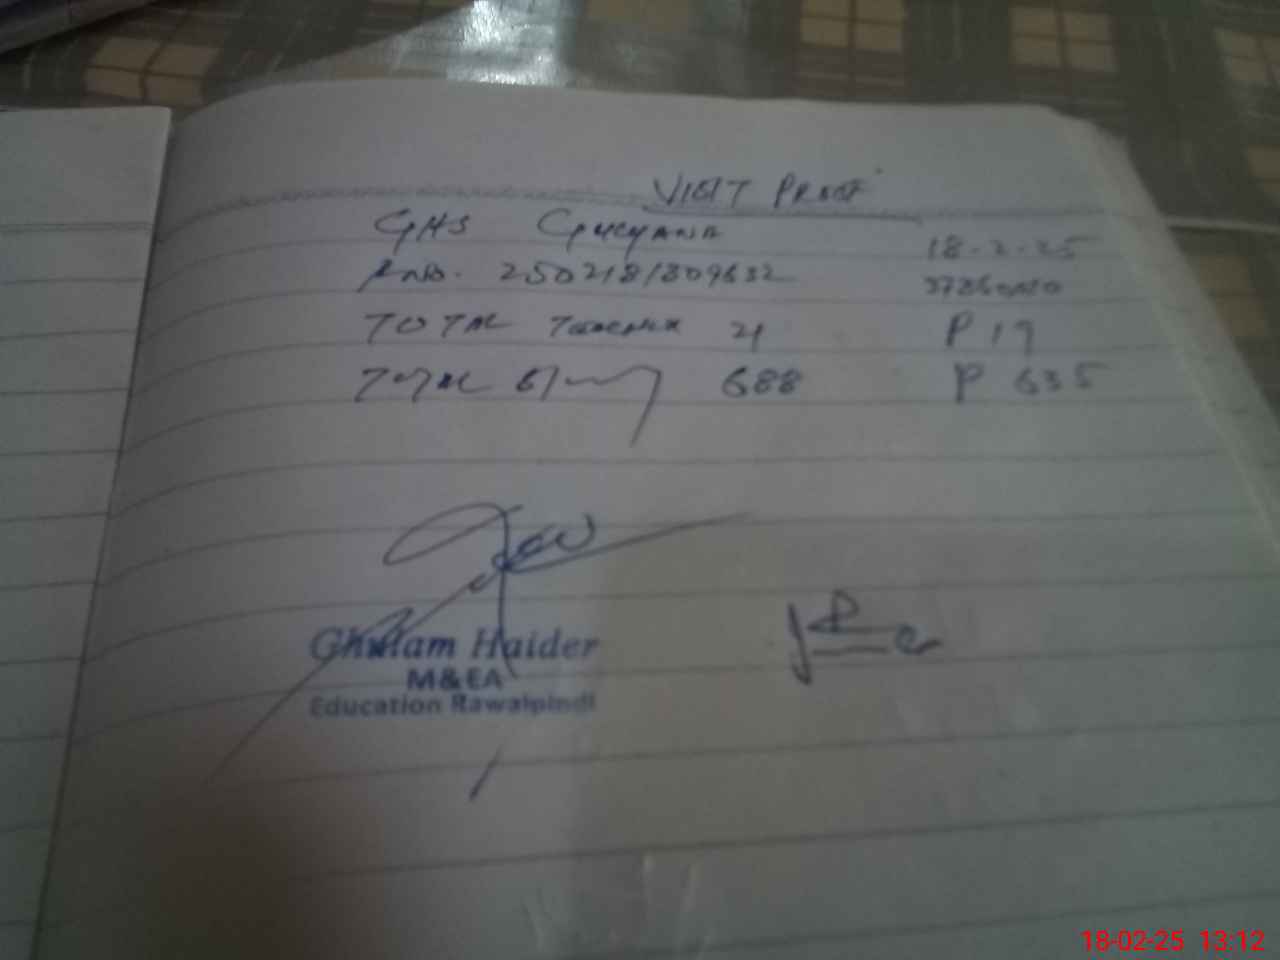 VISIT PROOF
GHS GULYANA 18-2-25
R NO. 250218/809632
TOTAL TEACHER 21 P 19
TOTAL 688 P 635
Ghulam Haider
M&EA
Education Rawalpindi
18-02-25 13:12